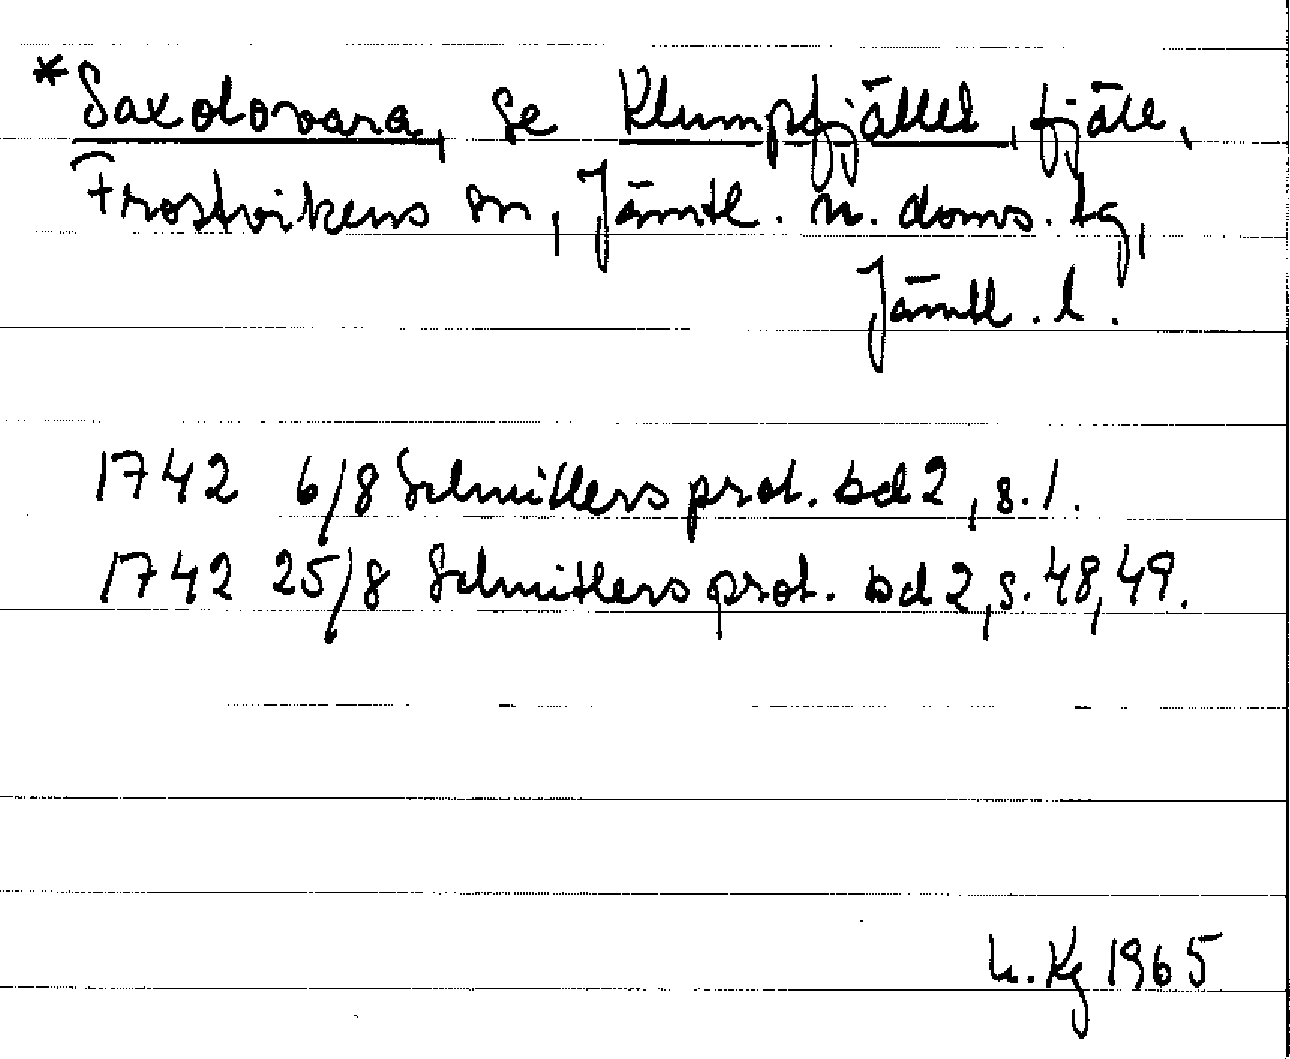 *Saxdovara, se Klumpfjället, fjäll,
Frostvikens sn, Jämtl. n. doms. tg,
Jämtl. l.
1742 6/8 Schnitlers prot. bd 2, s. 1.
1742 25/8 Schnitlers prot. bd 2, s. 48, 49.
Kg 1965